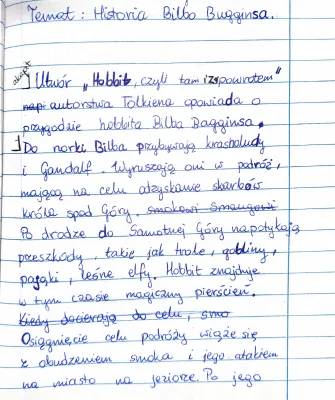 Temat: Historia Bilbo Bagginsa.
akapit
Utwór „Hobbit, czyli tam i z powrotem"
napi autorstwa Tolkiena opowiada o
przygodzie hobbita Bilba Bagginsa.
Do norki Bilba przybywają krasnoludy
i Gandalf. Wyruszają oni w podróż,
mającą na celu odzyskanie skarbów
króla spod Góry. smokowi Smaugowi
Po drodze do Samotnej Góry napotykają
przeszkody, takie jak trole, gobliny,
pająki, leśne elfy. Hobbit znajduje
w tym czasie magiczny pierścień.
Kiedy docierają do celu, smo
Osiągnięcie celu podróży wiąże się
z obudzeniem smoka i jego atakiem
na miasto na jeziorze. Po jego